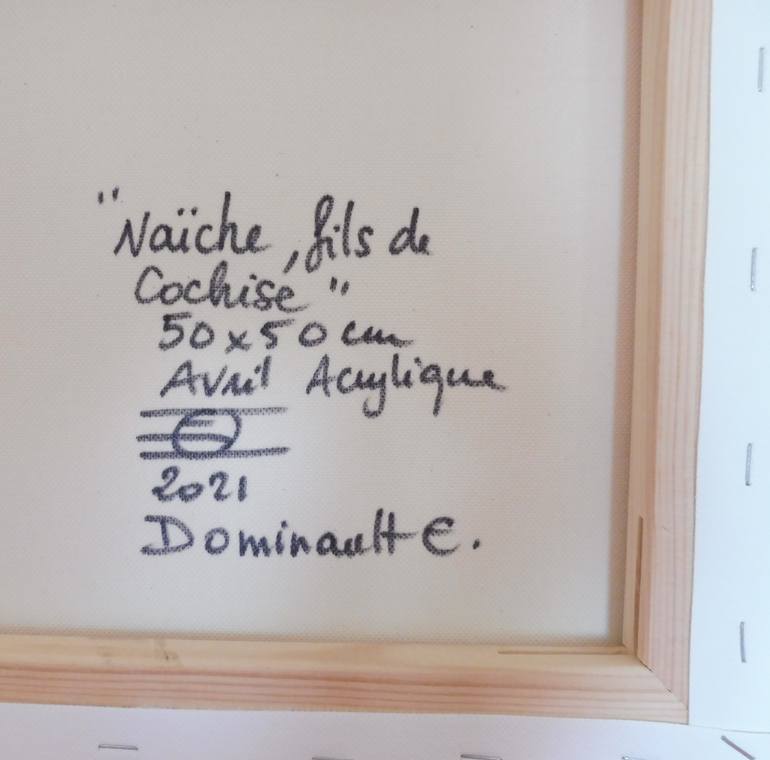 "Naïche, fils de
Cochise"
50x50cm
Avril Acrylique
2021
Dominault C.